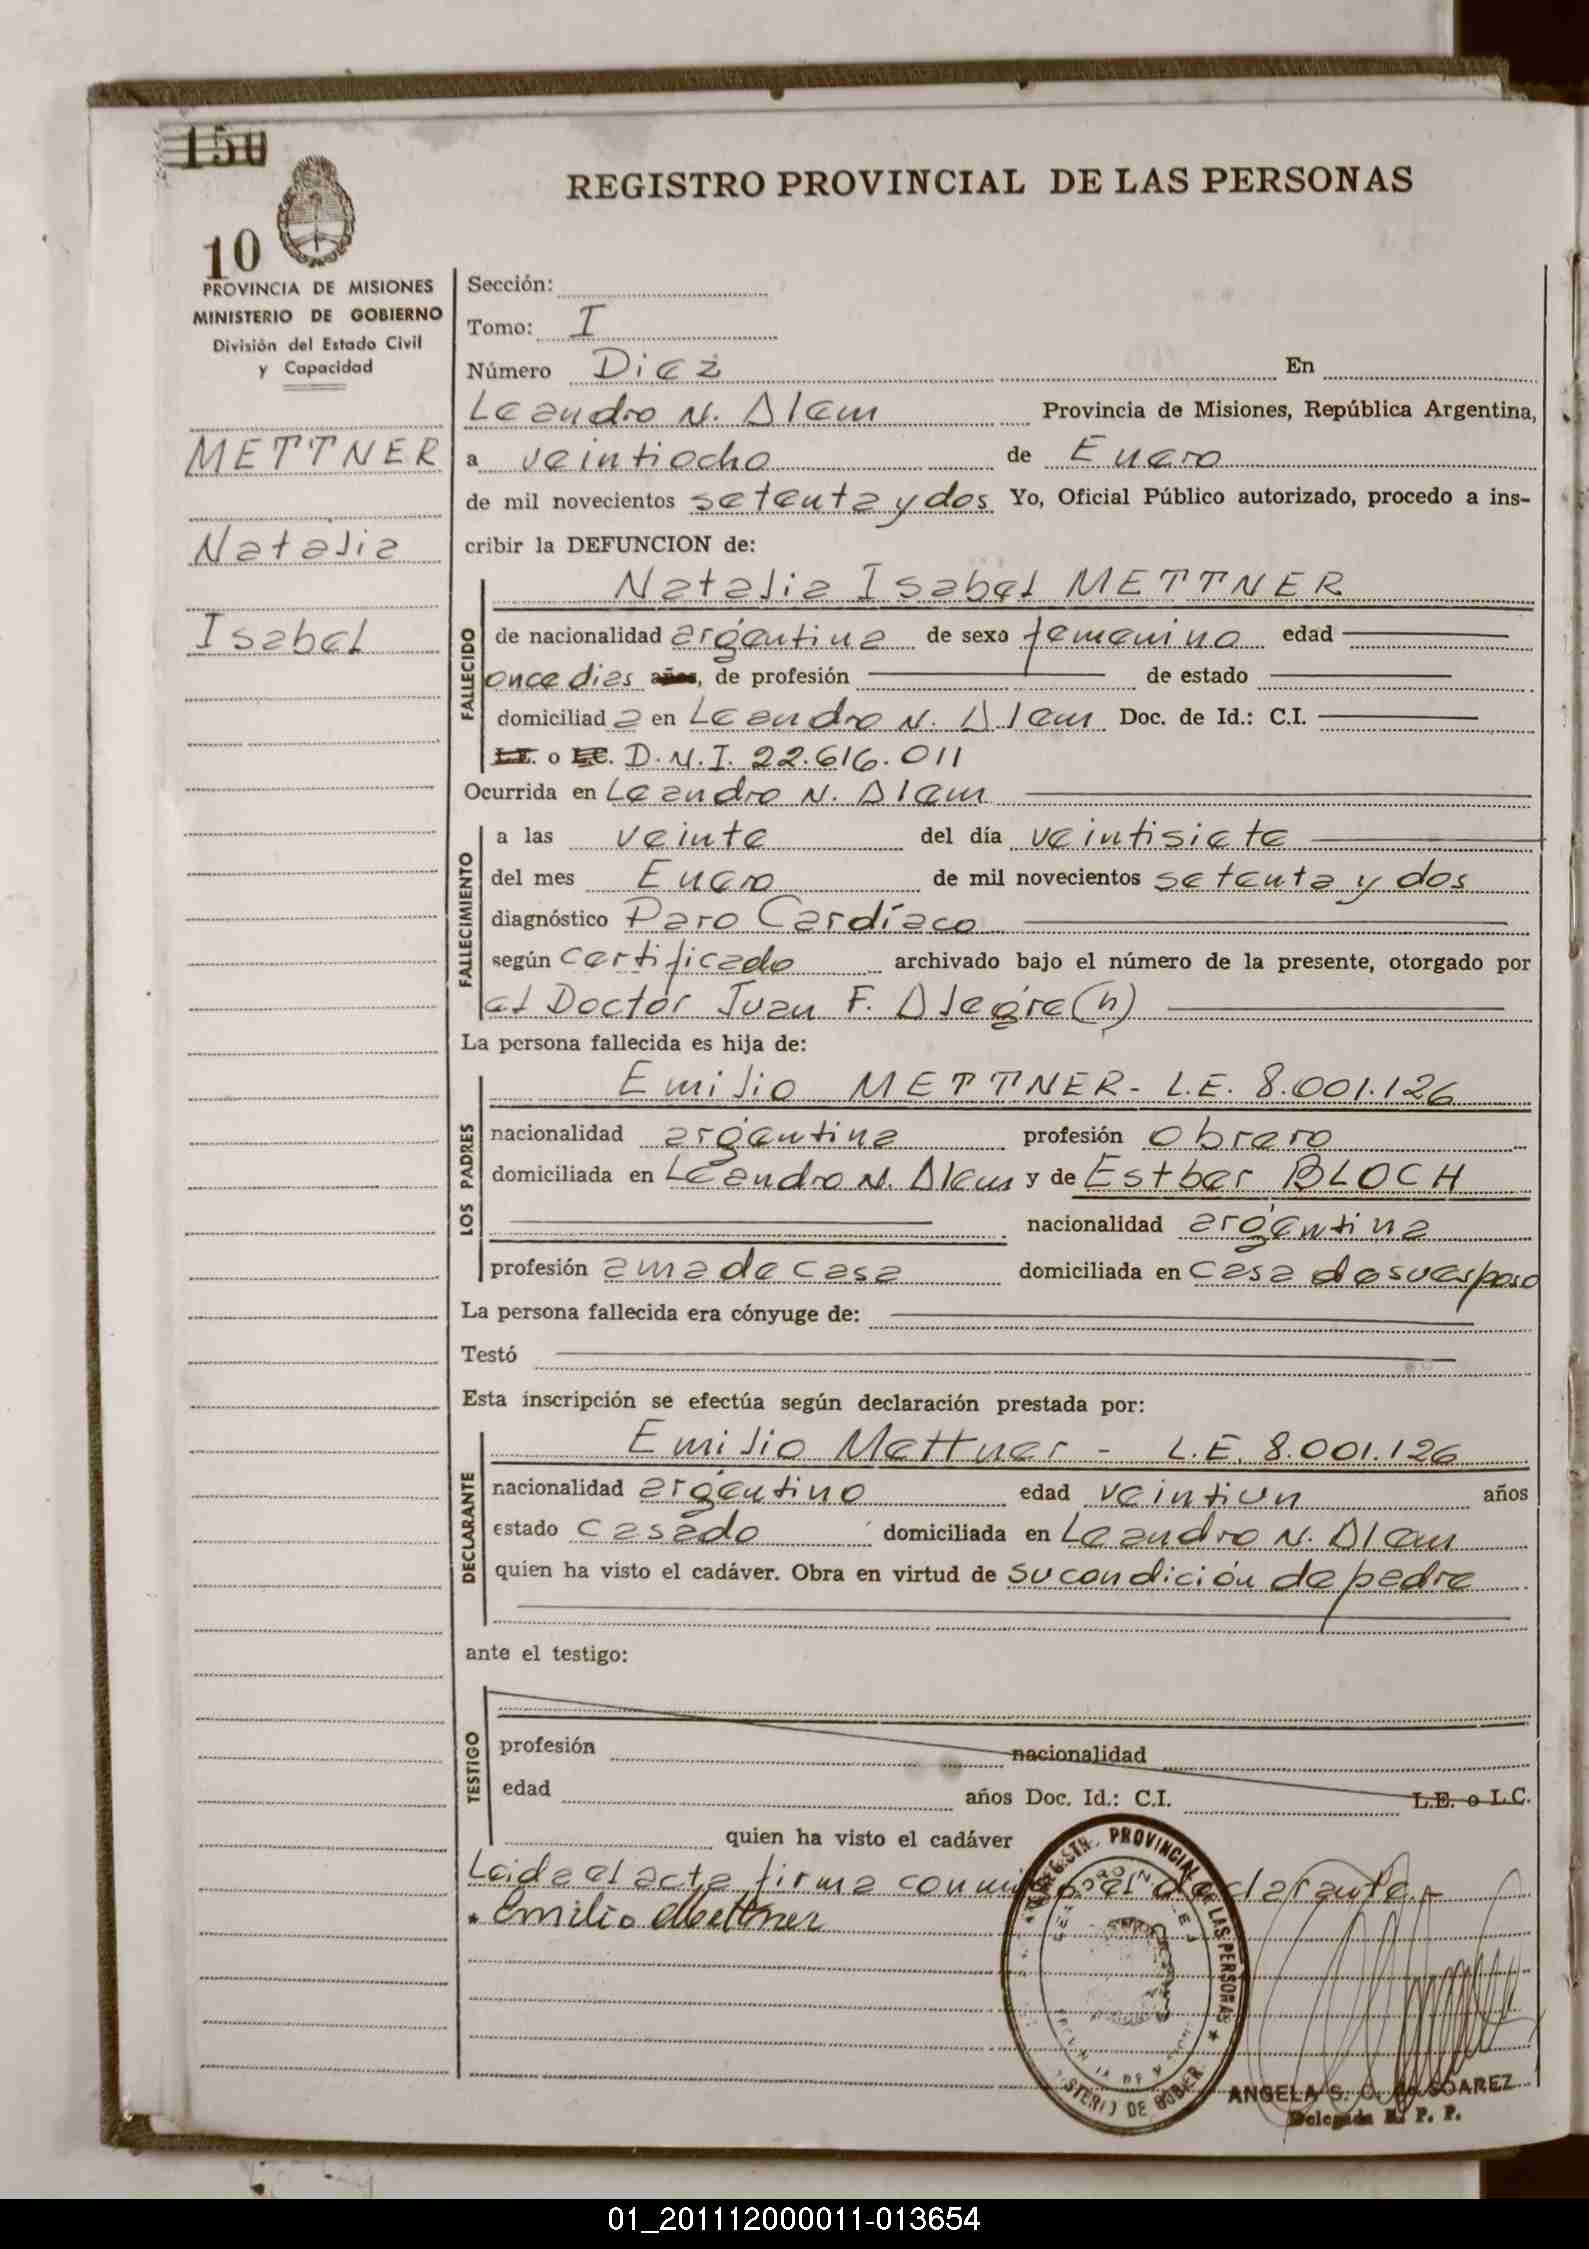 150
REGISTRO PROVINCIAL DE LAS PERSONAS
10
PROVINCIA DE MISIONES
MINISTERIO DE GOBIERNO
División del Estado Civil
y Capacidad
METTNER
Natalia
Isabel
Sección:
Tomo: I
Número Diez En
Leandro N. Alem Provincia de Misiones, República Argentina,
a veintiocho de Enero
de mil novecientos setenta y dos Yo, Oficial Público autorizado, procedo a ins-
cribir la DEFUNCION de:
FALLECIDO
Natalia Isabel METTNER
de nacionalidad argentina de sexo femenino edad
once dias años, de profesión de estado
domiciliad a en Leandro N. Alem Doc. de Id.: C.I.
L.E. o L.C. D.N.I. 22.616.011
Ocurrida en Leandro N. Alem
FALLECIMIENTO
a las veinte del día veintisiete
del mes Enero de mil novecientos setenta y dos
diagnóstico Paro Cardíaco
según certificado archivado bajo el número de la presente, otorgado por
el Doctor Juan F. Alegre (h)
La persona fallecida es hija de:
LOS PADRES
Emilio METTNER - L.E. 8.001.126
nacionalidad argentina profesión obrero
domiciliada en Leandro N. Alem y de Esther BLOCH
nacionalidad argentina
profesión ama de casa domiciliada en casa de su esposo
La persona fallecida era cónyuge de:
Testó
Esta inscripción se efectúa según declaración prestada por:
DECLARANTE
Emilio Mettner - L.E. 8.001.126
nacionalidad argentino edad veintiun años
estado casado domiciliada en Leandro N. Alem
quien ha visto el cadáver. Obra en virtud de su condición de padre
ante el testigo:
TESTIGO
profesión nacionalidad
edad años Doc. Id.: C.I. L.E. o L.C.
quien ha visto el cadáver
Leida el acta firma conmigo el declarante.-
* Emilio Mettner
REGISTR. PROVINCIAL DE LAS PERSONAS
MINISTERIO DE GOBIER.
ANGELA S. C. de SOAREZ
Delegada R. P. P.
01_201112000011-013654